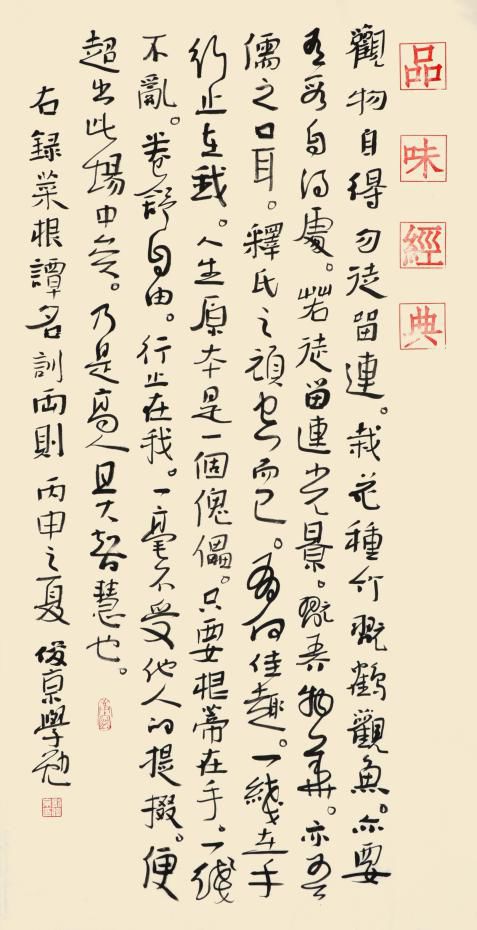 品味經典
觀物自得勿徒留連。栽花種竹翫鶴觀魚。亦要
有段自得處。若徒留連光景。翫弄物華。亦吾
儒之口耳。釋氏之頑空而已。有何佳趣。一線在手
行止在我。人生原本是一個傀儡。只要根蒂在手。一線
不亂。卷舒自由。行止在我。一毫不受他人的提掇。便
超出此場中矣。乃是高人且大智慧也。
右錄菜根譚名訓兩則 丙申之夏 俊京學勉